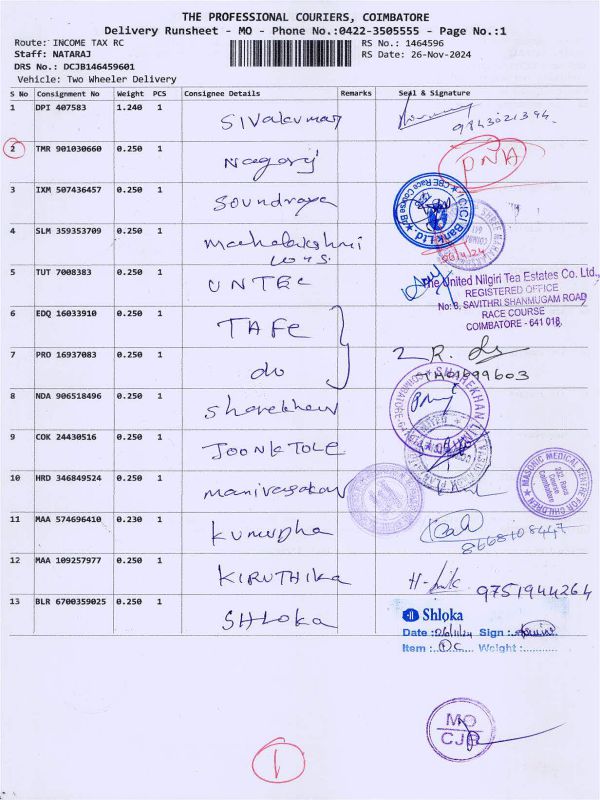 THE PROFESSIONAL COURIERS, COIMBATORE
Delivery Runsheet - MO - Phone No.:0422-3505555 - Page No.:1
Route: INCOME TAX RC
RS No.: 1464596
Staff: NATARAJ
RS Date: 26-Nov-2024
DRS No.: DCJB146459601
Vehicle: Two Wheeler Delivery
S No Consignment No Weight PCS Consignee Details Remarks Seal & Signature
1 DPI 407583 1.240 1 Sivakumar
9843021394
2 TMR 901030660 0.250 1 Nagaraj DNA
3 IXM 507436457 0.250 1 Soundraya
ICICI Bank Ltd
CBE Race Course Br
4 SLM 359353709 0.250 1 Mahalakshmi
26/11/24
5 TUT 7008383 0.250 1 UNTEC
The United Nilgiri Tea Estates Co. Ltd.,
REGISTERED OFFICE
No: 3, SAVITHRI SHANMUGAM ROAD
RACE COURSE
COIMBATORE - 641 018.
6 EDQ 16033910 0.250 1 TAFE
7 PRO 16937083 0.250 1 do 2 R.
8 NDA 906518496 0.250 1 Sharekhan
SHAREKHAN LIMITED
COIMBATORE
9 COK 24430516 0.250 1 JOONKTOLE
10 HRD 346849524 0.250 1 manivasakan
MASONIC MEDICAL CENTRE FOR CHILDREN
Race
Course
Coimbatore
11 MAA 574696410 0.230 1
8668108447
12 MAA 109257977 0.250 1 KIRUTHIKA
9751944264
13 BLR 6700359025 0.250 1 SHLOKA
Shloka
Date :26/11/24 Sign :
Item : DC Weight :
MO
CJB
1